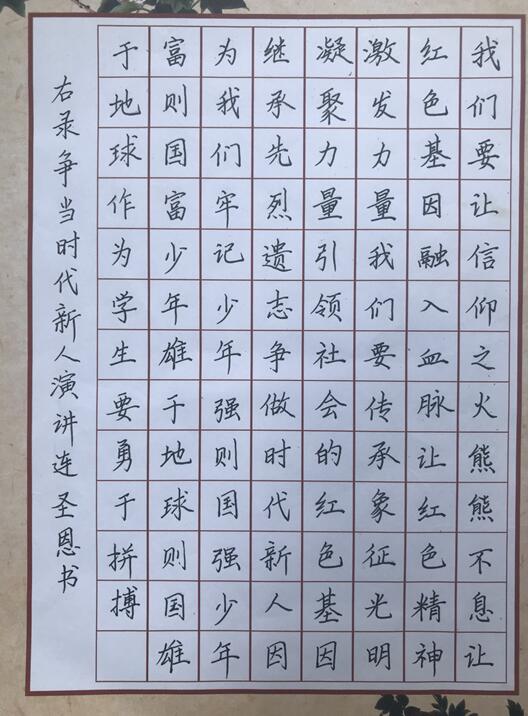 我们要让信仰之火熊熊不息让
红色基因融入血脉让红色精神
激发力量我们要传承象征光明
凝聚力量引领社会的红色基因
继承先烈遗志争做时代新人因
为我们牢记少年强则国强少年
富则国富少年雄于地球则国雄
于地球作为学生要勇于拼搏
右录争当时代新人演讲连圣恩书